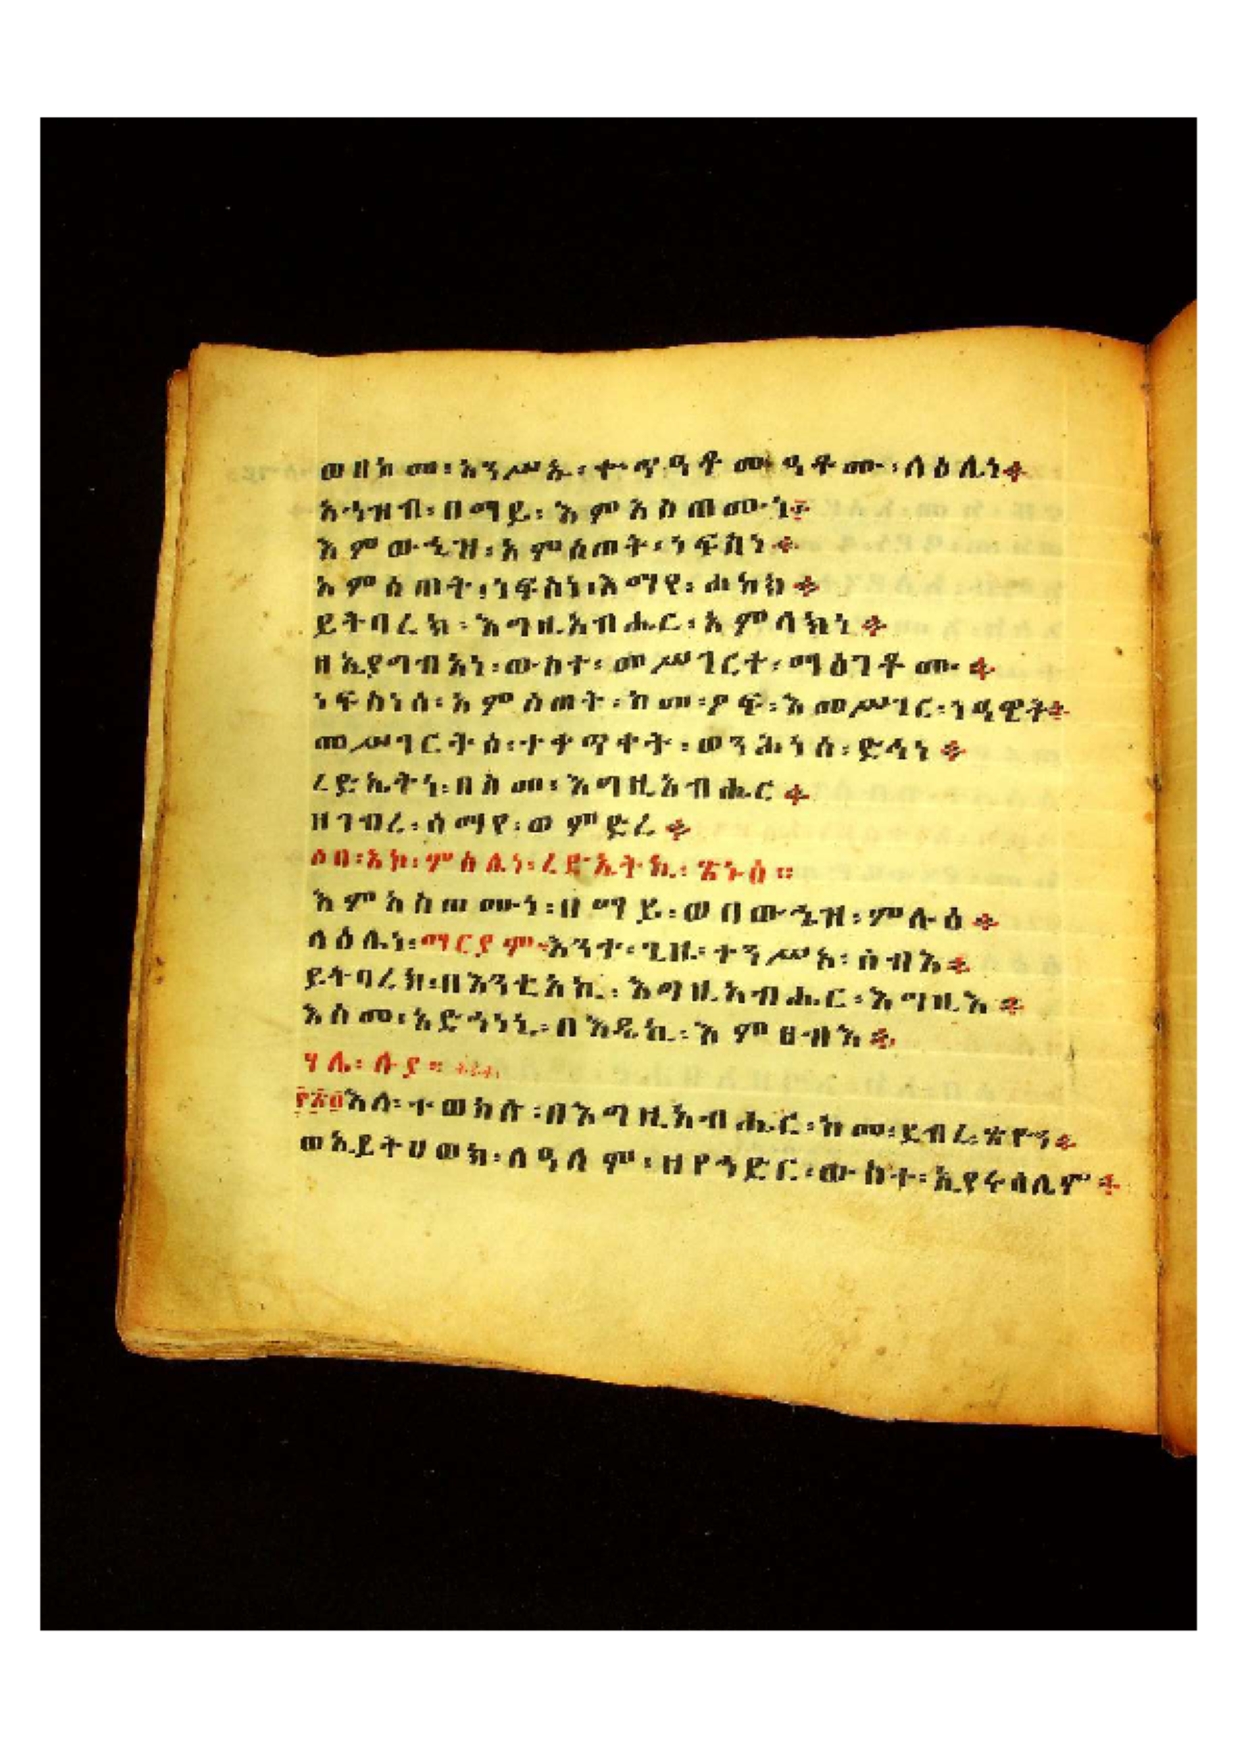 ወበከመ፡ አንሥኡ፡ ቍጥዓቶሙ፡ ላዕሌነ፨
አኅዝብ፡ በማይ፡ እምአስጠሙነ፨
እምውኂዝ፡ አምሰጠት፡ ነፍስነ፨
አምሰጠት፡ ነፍስነ፡ እማየ፡ ሐከክ፨
ይትባረክ፡ እግዚአብሔር፡ አምላክነ፨
ዘኢያግብአነ፡ ውስተ፡ መሥገርተ፡ ማዕገቶሙ፨
ነፍስነሰ፡ አምሰጠት፡ ከመ፡ ዖፍ፡ እመሥገር፡ ነዓዊት፨
መሥገርትሰ፡ ተቀጥቀት፡ ወንሕነሰ፡ ድኅነ፨
ረድኤትነ፡ በስመ፡ እግዚአብሔር፨
ዘገብረ፡ ሰማየ፡ ወምድረ፨
ሶበ፡ አኮ፡ ምስሌነ፡ ረድኤትኪ፡
እምአስጠሙነ፡ በማይ፡ ወበውኂዝ፡ ምሉዕ፨
ላዕሌነ፡ ማርያም፡ እንተ፡ ጊዜ፡ ተንሥአ፡ ሰብእ፨
ይትባረክ፡ በእንቲአኪ፡ እግዚአብሔር፡ እግዚእ፨
እስመ፡ አድኀነነ፡ በእዴኪ፡ እምፀብእ፨
ሃሌ፡ ሉያ።
እለ፡ ተወከሉ፡ በእግዚአብሔር፡ ከመ፡ ደብረ፡ ጽዮን፨
ወኢይትሀወክ፡ ለዓለም፡ ዘየኀድር፡ ውስተ፡ ኢየሩሳሌም፨